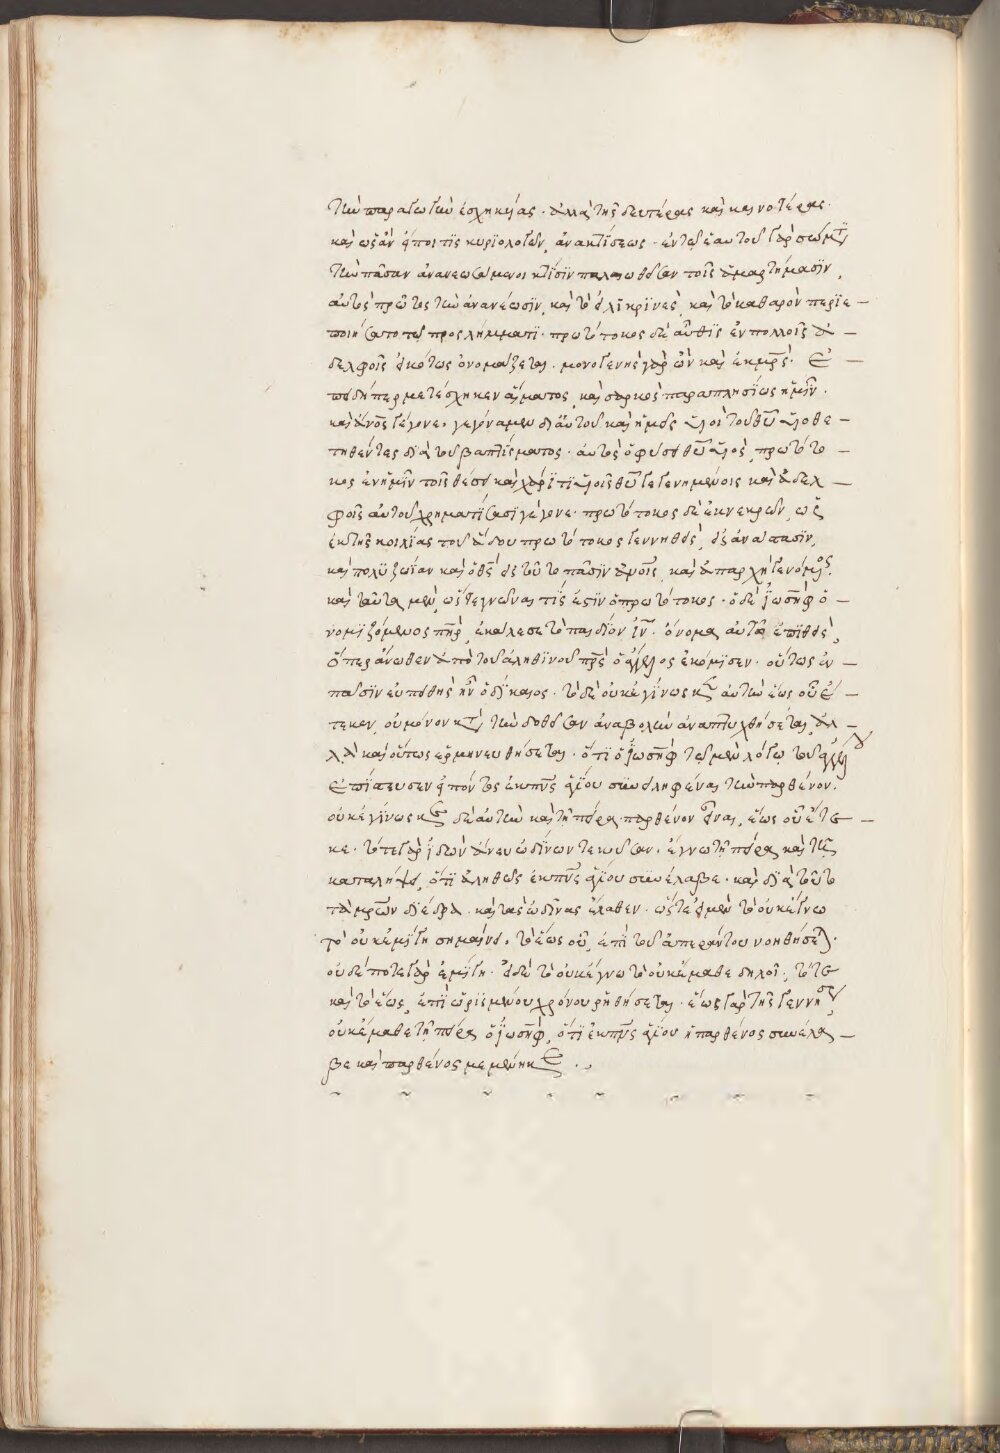 τὴν παραγωγὴν ἐσχηκυίας· ἀλλὰ τῆς δευτέρας καὶ καινοτέρας·
καὶ ὡς ἂν εἴποι τις κυριολογῶν, ἀνακτίσεως· ἐν τῷ ἑαυτοῦ γὰρ σώμτι
τὴν πᾶσαν ἀνανεωσάμενος κτίσϊν παλαιωθεῖσαν τοῖς ἁμαρτήμασϊν,
αὐτὸς πρῶτος τὴν ἀνανέωσϊν, καὶ τὸ εἰλικρϊνὲς, καὶ τὸ καθαρὸν περϊε –
ποιήσατο τῷ προσλήμματϊ· πρωτότοκος δὲ αὖθϊς ἐν πολλοῖς ἀ –
δελφοῖς εἰκότως ὀνομάζεται. μονογενὴς γὰρ ὢν καὶ ἐκ μρς· ἐ –
πειδήπερ μετέσχηκεν αἵματος, καὶ σαρκὸς παραπλησίως ἡμῖν·
καὶ ἄνος γέγονε. γεγόναμεν δι' αὐτοῦ καὶ ἡμεῖς υἱοὶ τοῦ θυ υἱοθε –
τηθέντες διὰ τοῦ βαπτίσματος· αὐτὸς ὁ φύσει θυ υἱὸς, πρωτότο –
κος ἐν ἡμῖν τοῖς θέσει καὶ χάρϊτι υἱοῖς θυ γεγενημένοις καὶ ἀδελ –
φοῖς αὐτοῦ χρηματίσασϊ γέγονε· πρωτότοκος δὲ ἐκ νεκρῶν, ὡς
ἐκ τῆς κοιλίας τοῦ ἅδου πρωτότοκος γεννηθεὶς, εἰς ἀνάστασϊν,
καὶ πολϋζωΐαν καὶ ὁθεὶς εἰς τοῦτο πᾶσϊν ἀνοις, καὶ ἀπαρχὴ γενόμος.
καὶ ταῦτα μὲν, ὥστε γνῶναι τίς ἐστϊν ὁ πρωτότοκος· ὁ δὲ ἰωσὴφ ὁ –
νομϊζόμενος πηρ, ἐκάλεσε τὸ παιδίον ιν. ὄνομα αὐτῶ ἐπϊθεὶς,
ὅπερ ἄνωθεν ἀπὸ τοῦ ἀληθϊνοῦ πρς ὁ ἄγγελος ἐκόμϊσεν· οὕτως ἐν –
πᾶσϊν εὐπειθὴς ἦν ὁ δίκαιος· τὸ δὲ οὐκ ἐγίνωσκεν αὐτὴν ἕως οὗ ἔ –
τεκεν, οὐ μόνον κατὰ τὴν δοθεῖσαν ἀναβολὴν ἀναπτυχθήσεται, ἀλ –
λὰ καὶ οὕτως ἑρμηνευθήσεται· ὅτι ὁ ἰωσὴφ τῷ μὲν λόγῳ τοῦ ἀγγέλου
ἐπίστευσεν εἰπόντος ἐκ πνς ἁγίου συνειληφέναι τὴν παρθένον.
οὐκ ἐγίνωσκεν δὲ αὐτὴν καὶ τῆ πείρα παρθένον εἶναι, ἕως οὗ ἔτε –
κε· τότε γὰρ ἰδὼν ἄνευ ὠδίνων τεκοῦσαν. ἔγνω τῆ πείρα καὶ τῆ
καταλήψει, ὅτϊ ἀληθῶς ἐκ πνς ἁγίου συνέλαβε· καὶ διὰ τοῦτο
τὰ μρῶν διέδρα. καὶ τὰς ὠδῖνας ἔλαθεν· ὥστε εἰ μὲν τὸ οὐκ ἔγνω
τὸ οὐκ ἐμίγη σημαίνει. τὸ ἕως οὗ, ἐπὶ τοῦ ἀπεράντου νοηθήσεται·
οὐδέποτε γὰρ ἐμίγη· εἰ δὲ τὸ οὐκ ἔγνω τὸ οὐκ ἔμαθε δηλοῖ, τότε
καὶ τὸ ἕως, ἐπὶ ὡρισμένου χρόνου ῥηθήσεται· ἕως γὰρ τῆς γεννήσεως
οὐκ ἔμαθε τῆ πείρα ὁ ἰωσὴφ, ὅτϊ ἐκ πνς ἁγίου ἡ παρθένος συνέλα –
βε καὶ παρθένος μεμένηκεν·